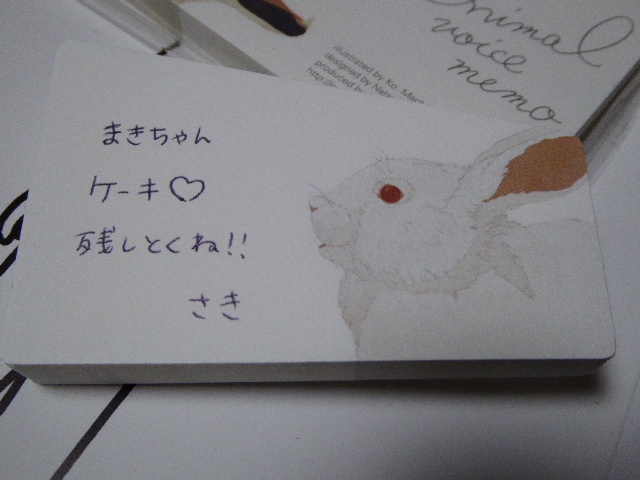 animal
voice
memo
illustrated by Ko.
designed by
produced by
まきちゃん
ケーキ♡
残しとくね!!
さき